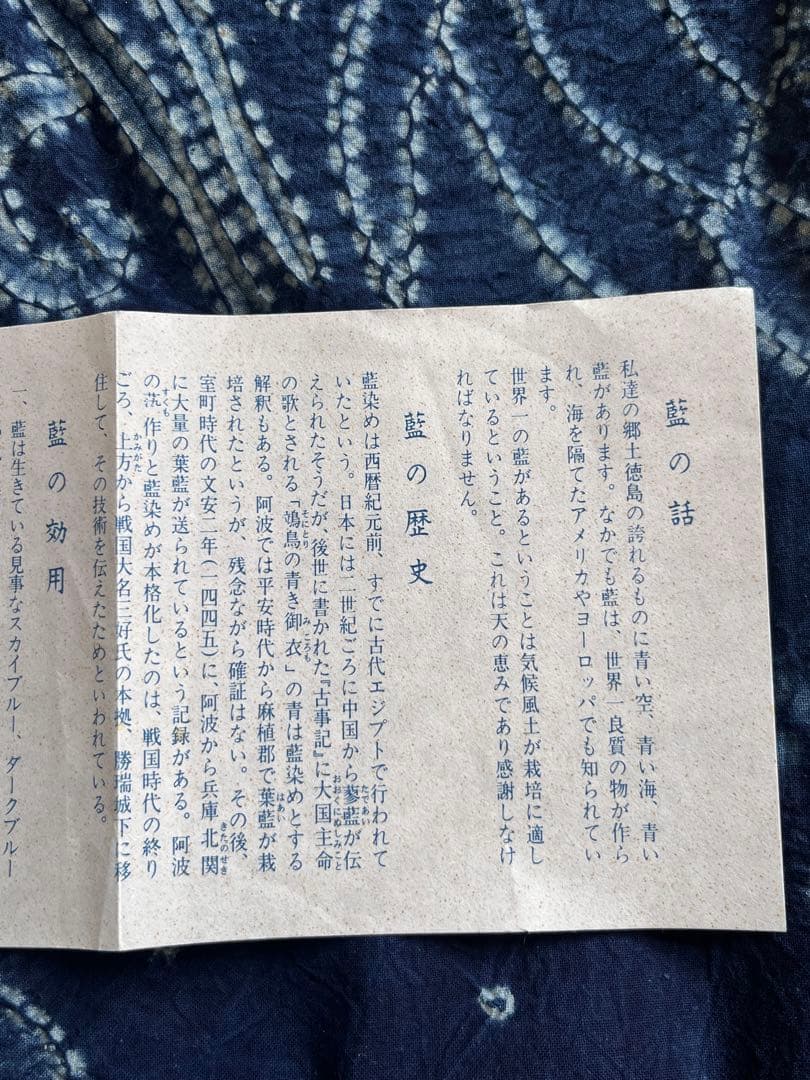 藍の話
私達の郷土徳島の誇れるものに青い空、青い海、青い
藍があります。なかでも藍は、世界一良質の物が作ら
れ、海を隔てたアメリカやヨーロッパでも知られてい
ます。
世界一の藍があるということは気候風土が栽培に適し
ているということ。これは天の恵みであり感謝しなけ
ればなりません。
藍の歴史
藍染めは西暦紀元前、すでに古代エジプトで行われて
いたという。日本には二世紀ごろに中国から蓼藍が伝
たであい
えられたそうだが、後世に書かれた『古事記』に大国主命
おおぐにぬしみこと
の歌とされる「鴗鳥の青き御衣」の青は藍染めとする
そにとり
みごろも
解釈もある。阿波では平安時代から麻植郡で葉藍が栽
はあい
培されたというが、残念ながら確証はない。その後、
室町時代の文安二年(一四四五)に、阿波から兵庫北関
きたのせき
に大量の葉藍が送られているという記録がある。阿波
の蒅作りと藍染めが本格化したのは、戦国時代の終り
すくも
ごろ、上方から戦国大名三好氏の本拠、勝瑞城下に移
かみがた
住して、その技術を伝えたためといわれている。
藍の効用
一、藍は生きている見事なスカイブルー、ダークブルー